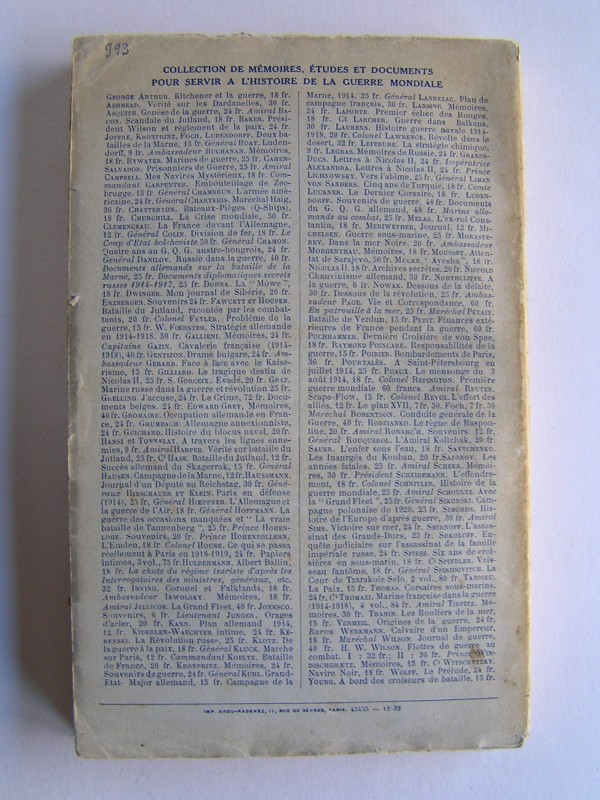 993
COLLECTION DE MÉMOIRES, ÉTUDES ET DOCUMENTS
POUR SERVIR A L'HISTOIRE DE LA GUERRE MONDIALE
GEORGE ARTHUR. Kitchener et la guerre, 18 fr.
ASHMEAD. Vérité sur les Dardanelles, 30 fr.
ASQUITH. Genèse de la guerre, 24 fr. Amiral BA-
CON. Scandale du Jutland, 18 fr. BAKER. Prési-
dent Wilson et règlement de la paix, 24 fr.
JOFFRE, KRONPRINZ, FOCH, LUDENDORFF. Deux ba-
tailles de la Marne, 15 fr. Général BUAT. Luden-
dorff, 9 fr. Ambassadeur BUCHANAN. Mémoires,
18 fr. BYWATER. Marines de guerre, 25 fr. CAHEN-
SALVADOR. Prisonniers de Guerre, 25 fr. Amiral
CAMPBELL. Mes Navires Mystérieux, 18 fr. Com-
mandant CARPENTER. Embouteillage de Zee-
brugge, 15 fr. Général CHAMBRUN. L'armée amé-
ricaine. 24 fr. Général CHARTERIS. Maréchal Haig,
36 fr. CHATTERTON. Bateaux-Pièges (Q-Ships),
18 fr. CHURCHILL. La Crise mondiale, 50 fr.
CLEMENCEAU. La France devant l'Allemagne,
12 fr. Général COLIN. Division de fer, 18 fr. Le
Coup d'Etat bolcheviste 50 fr. Général CRAMON.
Quatre ans au G. Q. G. austro-hongrois, 24 fr.
Général DANILOV. Russie dans la guerre, 40 fr.
Documents allemands sur la bataille de la
Marne, 25 fr. Documents diplomatiques secrets
russes 1914-1917, 25 fr. DOHNA. La "Möwe",
18 fr. DWINGER. Mon journal de Sibérie, 20 fr.
ERZBERGER. Souvenirs 24 fr. FAWCETT ET HOOPER.
Bataille du Jutland, racontée par les combat-
tants, 20 fr. Colonel FEYLER. Problème de la
guerre, 15 fr. W. FŒRSTER. Stratégie allemande
en 1914-1918. 50 fr. GALLIENI. Mémoires, 24 fr.
Capitaine GAZIN. Cavalerie française (1914-
1918), 40 fr. GENTIZON. Drame bulgare, 24 fr. Am-
bassadeur GERARD. Face à face avec le Kaise-
risme, 15 fr. GILLIARD. Le tragique destin de
Nicolas II, 25 fr. S. GORGKY. Evadé, 20 fr. GRAF.
Marine russe dans la guerre et révolution 25 fr.
GRELLING. J'accuse, 24 fr. Le Crime, 72 fr. Docu-
ments belges. 24 fr. EDWARD GREY. Mémoires,
40 fr. GROMAIRE. Occupation allemande en Fran-
ce, 24 fr. GRUMBACH. Allemagne annexionniste,
24 fr. GUICHARD. Histoire du blocus naval, 20 fr.
HANSI et TONNELAT. A travers les lignes enne-
mies, 9 fr. Amiral HARPER. Vérité sur bataille du
Jutland, 25 fr. Cᵗ HASE. Bataille du Jutland, 12 fr.
Succès allemand du Skagerrak, 15 fr. Général
HAUSEN. Campagne de la Marne, 12 fr. HAUSSMANN.
Journal d'un Député au Reichstag, 30 fr. Géné-
raux HIRSCHAUER et KLEIN. Paris en défense
(1914), 25 fr. Général HOEPPNER. L'Allemagne et
la guerre de l'Air, 18 fr. Général HOFFMANN. La
guerre des occasions manquées et "La vraie
bataille de Tannenberg", 25 fr. Prince HOHEN-
LOHE. Souvenirs, 20 fr. Prince HOHENZOLLERN.
L'Emden, 18 fr. Colonel HOUSE. Ce qui se passa
réellement à Paris en 1918-1919, 24 fr. Papiers
intimes, 3 vol., 75 fr. HULDERMANN. Albert Ballin,
18 fr. La chute du régime tsariste d'après les
Interrogatoires des ministres, généraux, etc.
32 fr. IRVING. Coronel et Falklands, 18 fr.
Ambassadeur ISWOLSKY. Mémoires, 18 fr.
Amiral JELLICOE. La Grand Fleet, 40 fr. JONESCO.
Souvenirs, 6 fr. Lieutenant JUNGER. Orages
d'acier, 20 fr. KANN. Plan allemand 1914,
12 fr. KIDERLEN-WAECHTER intime, 24 fr. KÉ-
RENSKI. La Révolution russe, 25 fr. KLOTZ. De
la guerre à la paix, 18 fr. Général KLUCK. Marche
sur Paris, 12 fr. Commandant KOELTZ. Bataille
de France, 20 fr. KRONPRINZ. Mémoires, 24 fr.
Souvenirs de guerre, 24 fr. Général KUHL. Grand-
Etat-Major allemand, 15 fr. Campagne de la
Marne, 1914, 25 fr. Général LANREZAC. Plan de
campagne français, 30 fr. LANSING. Mémoires,
24 fr. LAPORTE. Premier échec des Rouges,
18 fr. Cᵗ LARCHER. Guerre dans Balkans,
30 fr. LAURENS. Histoire guerre navale 1914-
1918, 20 fr. Colonel LAWRENCE. Révolte dans le
désert, 32 fr. LEFEBURE. La stratégie chimique,
9 fr. LEGRAS. Mémoires de Russie, 24 fr. GRANDS-
DUCS. Lettres à Nicolas II, 24 fr. Impératrice
ALEXANDRA. Lettres à Nicolas II, 24 fr. Prince
LICHNOWSKY. Vers l'abîme, 25 fr. Général LIMAN
VON SANDERS. Cinq ans de Turquie, 18 fr. Comte
LUCKNER. Le Dernier Corsaire, 18 fr. LUDEN-
DORFF. Souvenirs de guerre, 48 fr. Documents
du G. Q. G. allemand, 48 fr. Marins alle-
mands au combat, 25 fr. MELAS. L'ex-roi Cons-
tantin, 18 fr. MERIWETHER. Journal, 12 fr. MI-
CHELSEN. Guerre sous-marine, 25 fr. MONASTE-
REV. Dans la mer Noire. 20 fr. Ambassadeur
MORGENTHAU. Mémoires, 18 fr. MOUSSET. Atten-
tat de Sarajevo, 50 fr. MUCKE. "Ayesha", 18 fr.
NICOLAS II. 18 fr. Archives secrètes, 20 fr. NIPPOLD
Chauvinisme allemand, 30 fr. NORTHCLIFFE. A
la guerre, 6 fr. NOWAK. Dessous de la défaite,
30 fr. Dessous de la révolution, 25 fr. Ambas-
sadeur PAGE. Vie et Correspondance, 60 fr.
En patrouille à la mer, 25 fr. Maréchal PETAIN.
Bataille de Verdun, 15 fr. PETIT. Finances exté-
rieures de France pendant la guerre, 60 fr.
POCHHAMMER. Dernière Croisière de von Spee,
18 fr. RAYMOND POINCARÉ. Responsabilités de la
guerre, 15 fr. POIRIER. Bombardements de Paris,
36 fr. POURTALÈS. A Saint-Pétersbourg en
juillet 1914, 25 fr. PUAUX. Le mensonge du 3
août 1914, 18 fr. Colonel REPINGTON. Première
guerre mondiale 60 francs. Amiral REUTER.
Scapa-Flow, 15 fr. Colonel REVOL. L'effort des
alliés, 12 fr. Le plan XVII, 7 fr. 50. Foch, 7 fr. 50
Maréchal ROBERTSON. Conduite générale de la
Guerre, 40 fr. RODZIANKO. Le règne de Raspou-
tine, 20 fr. Amiral RONARC'H. Souvenirs. 12 fr.
Général ROUQUEROL. L'Amiral Koltchak, 20 fr.
SAUER. L'enfer sous l'eau, 18 fr. SAVTCHENKO.
Les Insurgés du Kouban, 20 fr. SAZONOV. Les
années fatales. 25 fr. Amiral SCHEER. Mémoi-
res, 30 fr. Président SCHEIDEMANN. L'effondre-
ment, 18 fr. Colonel SCHNITLER. Histoire de la
guerre mondiale, 25 fr. Amiral SCHOULTZ. Avec
la "Grand Fleet", 25 fr. Général SIKORSKI. Cam-
pagne polonaise de 1920, 25 fr. SIMONDS. His-
toire de l'Europe d'après guerre, 30 fr. Amiral
SIMS. Victoire sur mer, 24 fr. SMIRNOFF. L'assas-
sinat des Grands-Ducs, 25 fr. SOKOLOFF. En-
quête judiciaire sur l'assassinat de la famille
impériale russe, 24 fr. SPIESS. Six ans de croi-
sières en sous-marin, 18 fr. Cᵗ SPINDLER. Vais-
seau fantôme, 18 fr. Général SPIRIDOVITCH. La
Cour de Tzarskoïe Selo, 2 vol., 80 fr. TARDIEU.
La Paix, 15 fr. THOMAS. Corsaires sous-marins,
24 fr. Cᵗ THOMAZI. Marine française dans la guerre
(1914-1918), 4 vol., 84 fr. Amiral TIRPITZ. Mé-
moires, 30 fr. TRANIN. Les Rouliers de la mer,
15 fr. VERMEIL. Origines de la guerre, 24 fr.
Baron WERKMANN. Calvaire d'un Empereur,
18 fr. Maréchal WILSON. Journal de guerre,
40 fr. H. W. WILSON. Flottes de guerre au
combat. I : 32 fr.; II : 36 fr. Prince WIN-
DISCHGRÆTZ. Mémoires, 15 fr. Cᵗ WITSCHETZKY.
Navire Noir, 18 fr. WOLFF. Le Prélude, 24 fr.
YOUNG. A bord des croiseurs de bataille, 15 fr.
IMP. CROU-RADENEZ, 11, RUE DE SÈVRES, PARIS. 43433 - 12-32